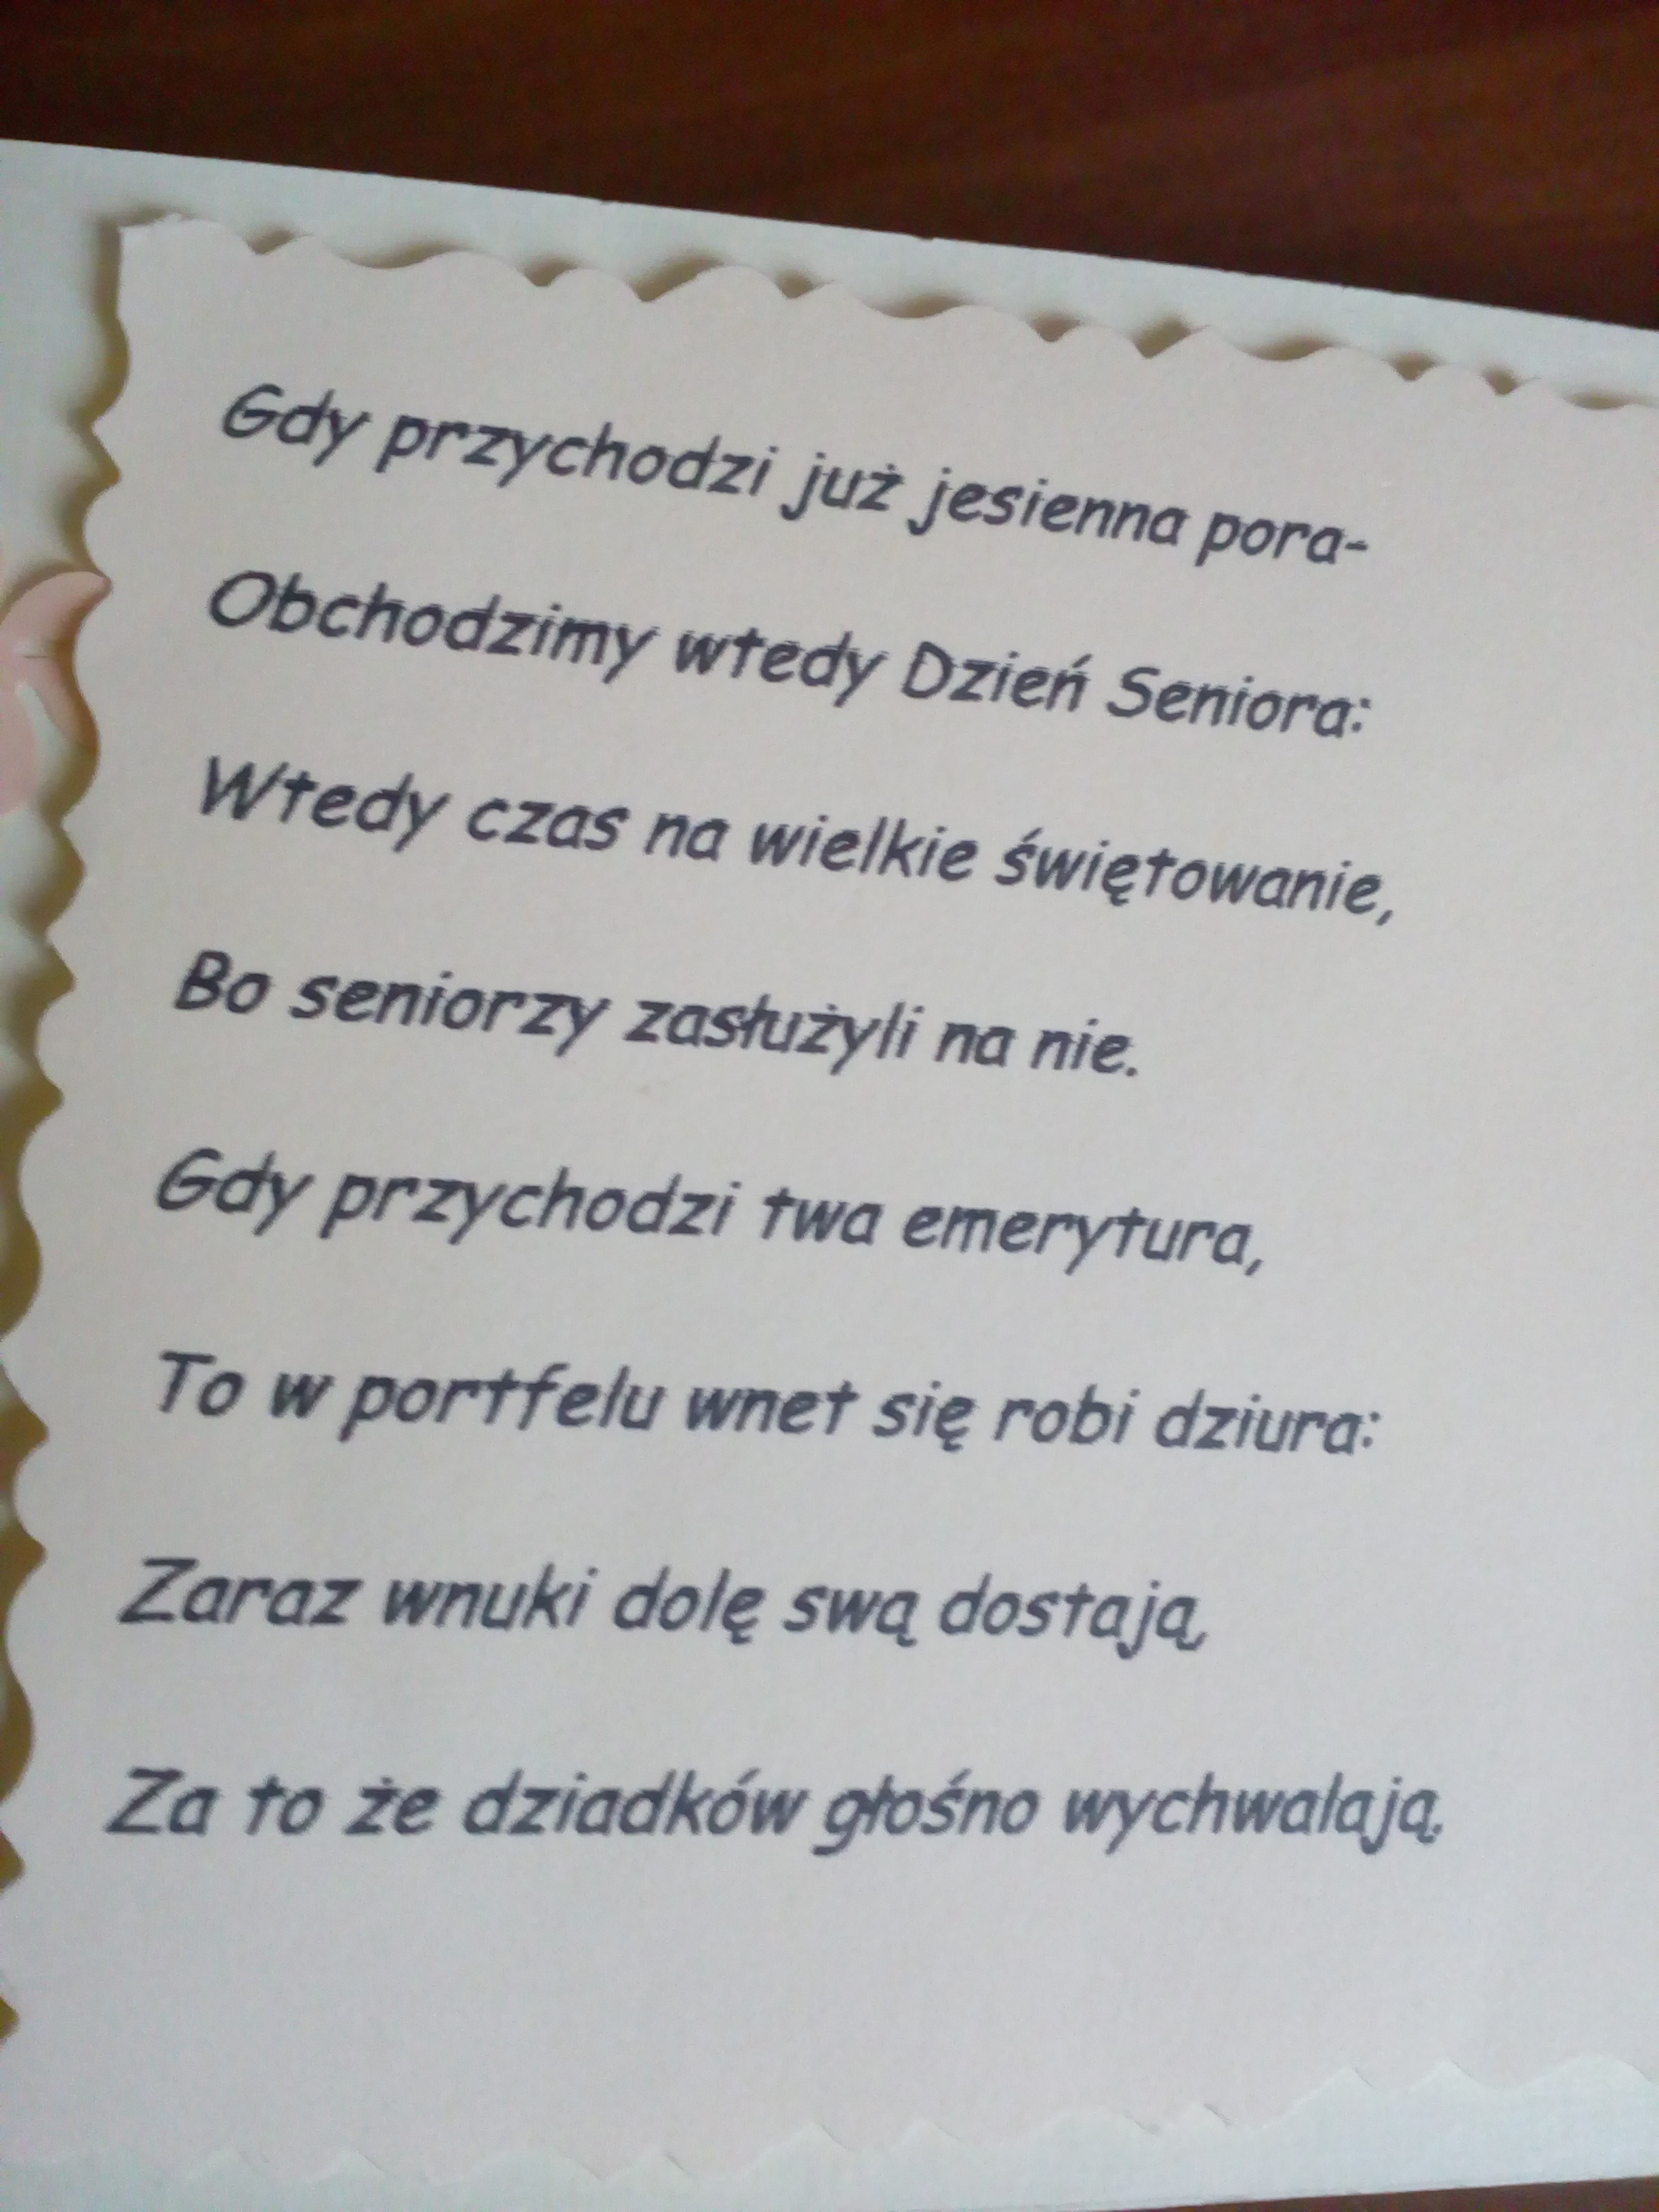 Gdy przychodzi już jesienna pora-
Obchodzimy wtedy Dzień Seniora:
Wtedy czas na wielkie świętowanie,
Bo seniorzy zasłużyli na nie.
Gdy przychodzi twa emerytura,
To w portfelu wnet się robi dziura:
Zaraz wnuki dolę swą dostają,
Za to że dziadków głośno wychwalają.